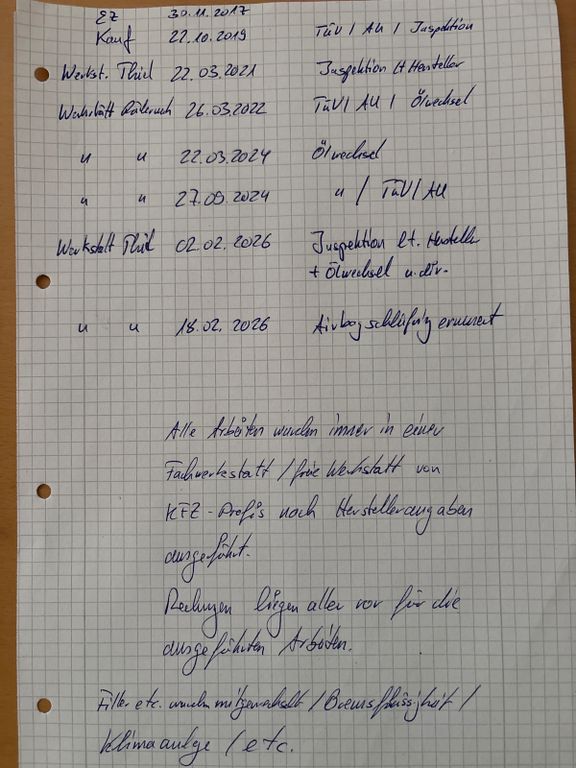 EZ 30.11.2017
Kauf 22.10.2019 TÜV / AU / Inspektion
Werkst. Thiel 22.03.2021 Inspektion lt Hersteller
Werkstatt 26.03.2022 TÜV / AU / Ölwechsel
" " 22.03.2024 Ölwechsel
" " 27.09.2024 " / TÜV / AU
Werkstatt Thiel 02.02.2026 Inspektion lt. Hersteller
+ Ölwechsel u. div.
" " 18.02.2026 Airbagschleifring erneuert
Alle Arbeiten wurden immer in einer
Fachwerkstatt / freie Werkstatt von
KFZ-Profis nach Herstellerangaben
ausgeführt.
Rechungen liegen aller vor für die
ausgeführten Arbeiten.
Filter etc. wurden mitgewechselt / Bremsflüssigkeit /
Klimaanlge / etc.